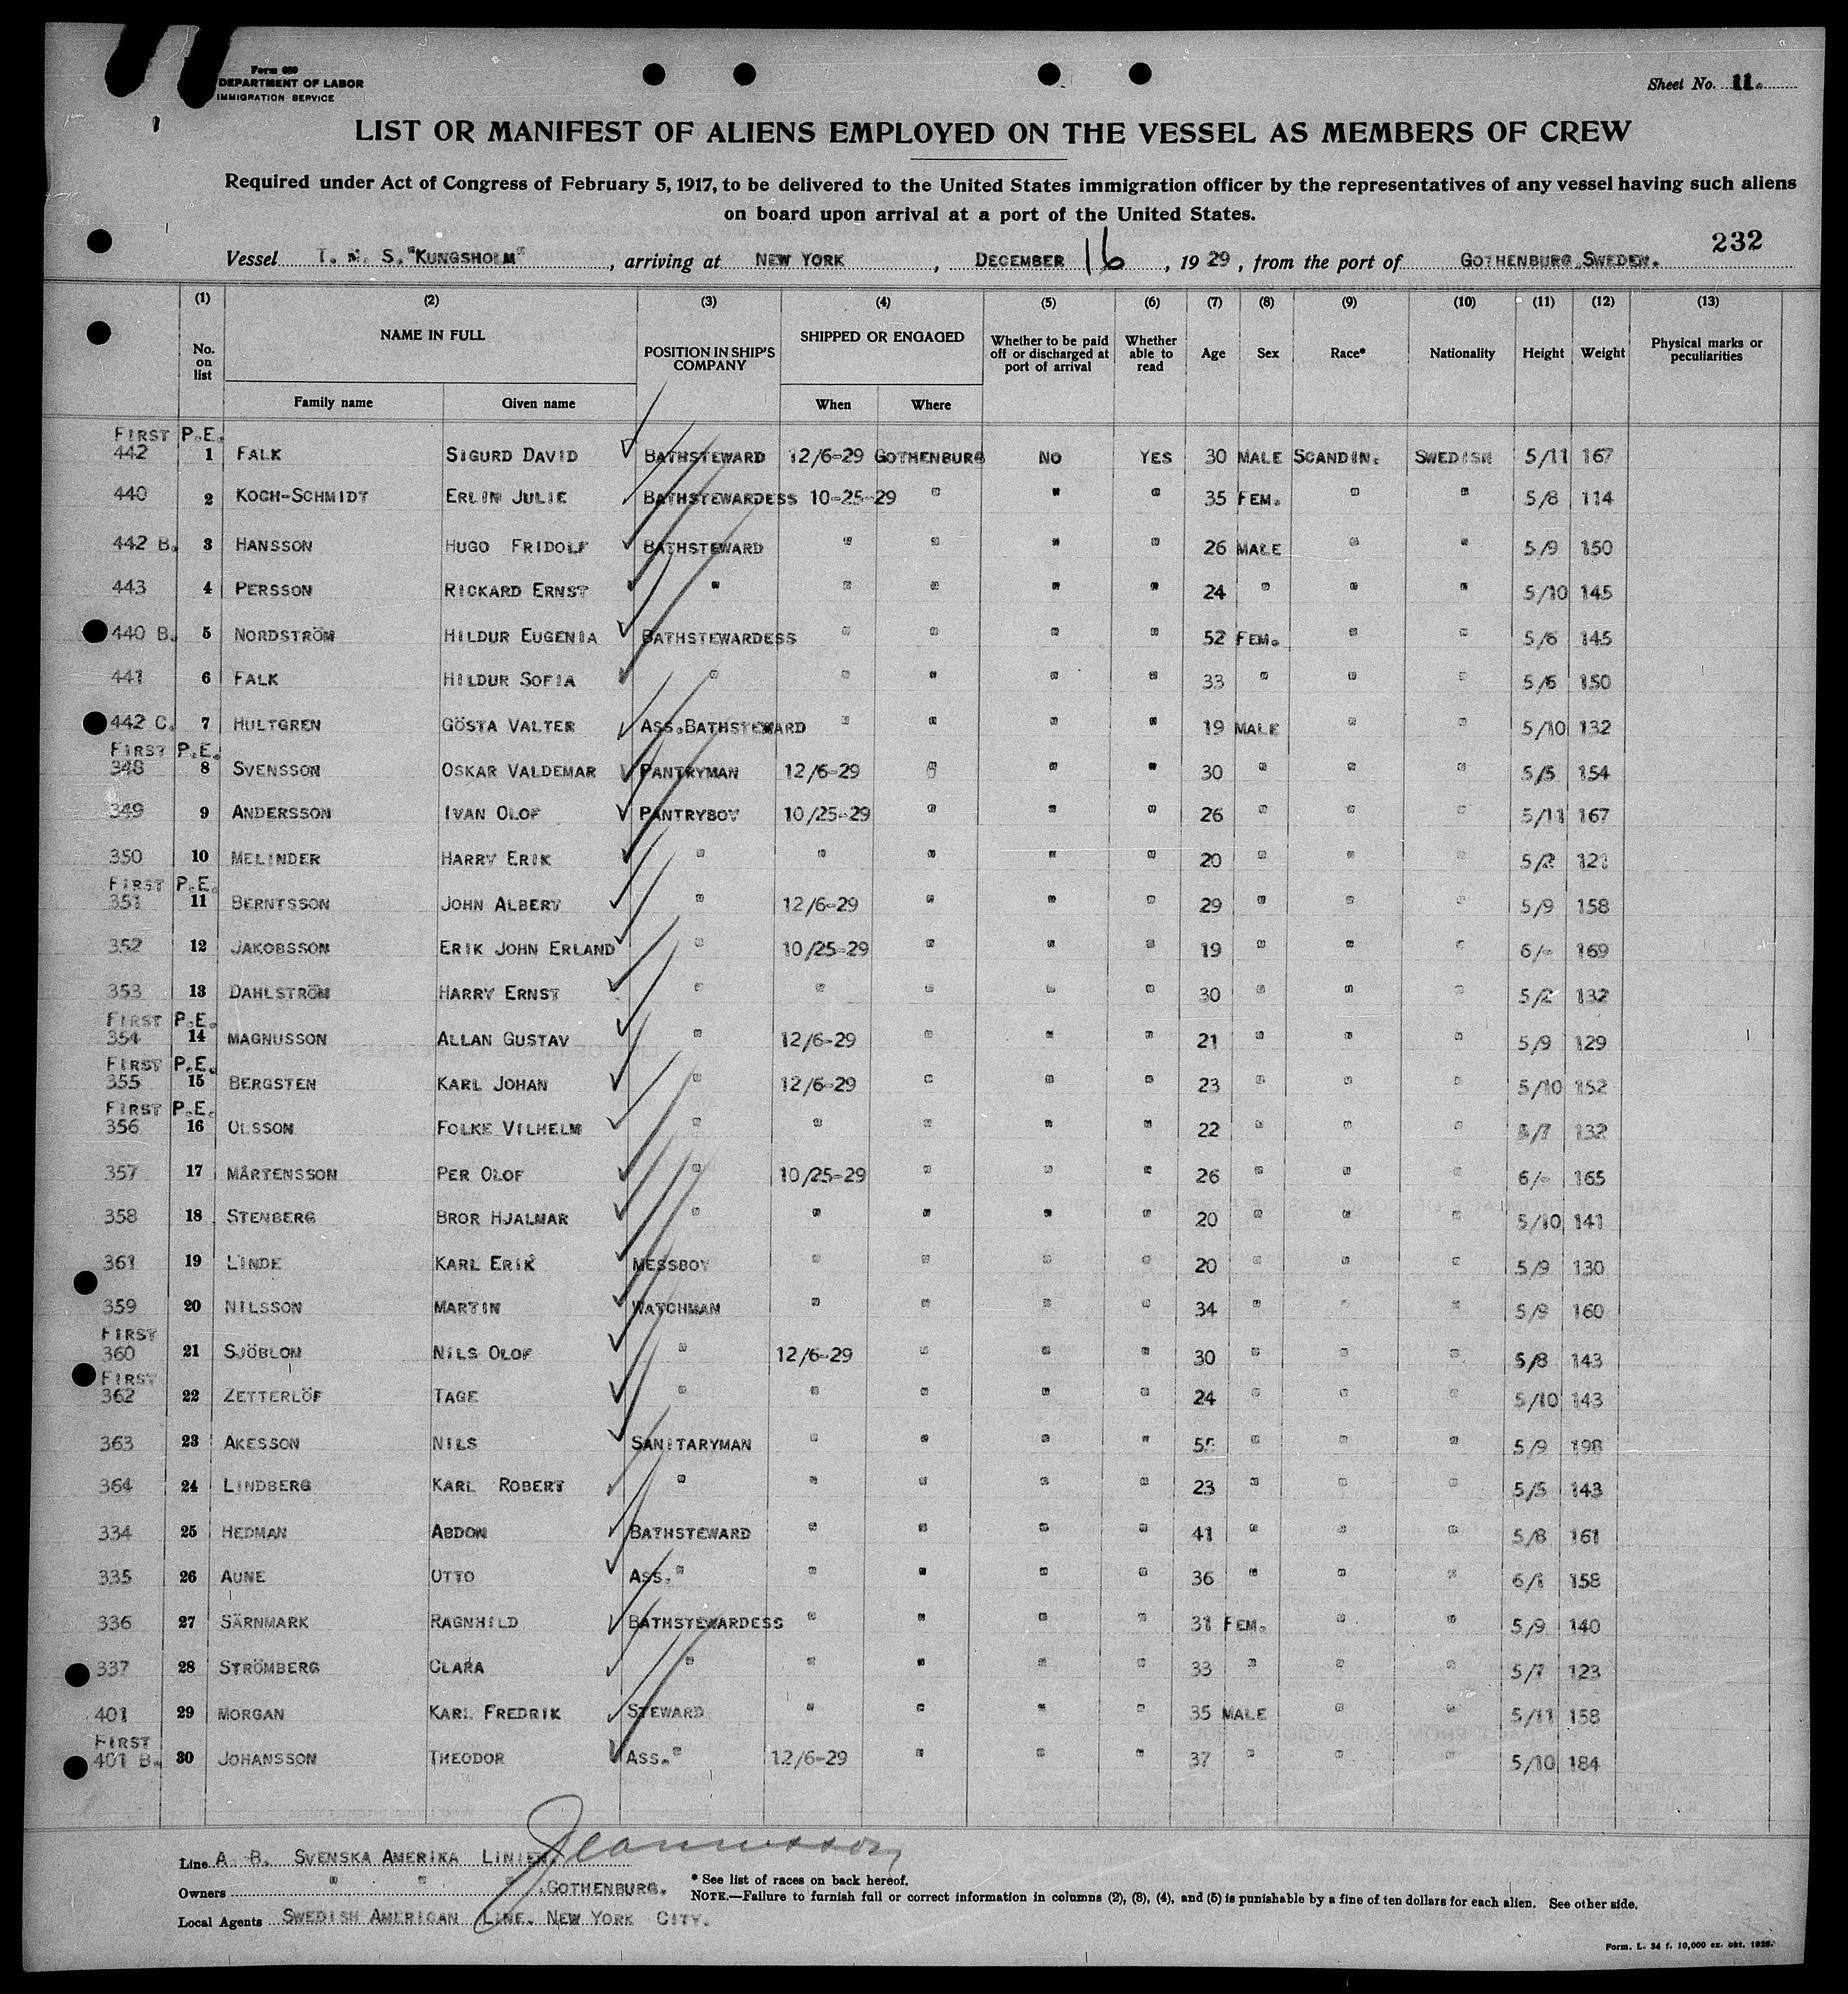 Form 689
DEPARTMENT OF LABOR
IMMIGRATION SERVICE
Sheet No. 11.
LIST OR MANIFEST OF ALIENS EMPLOYED ON THE VESSEL AS MEMBERS OF CREW
Required under Act of Congress of February 5, 1917, to be delivered to the United States immigration officer by the representatives of any vessel having such aliens
on board upon arrival at a port of the United States.
232
Vessel T. M. S. "KUNGSHOLM", arriving at NEW YORK, DECEMBER 16, 1929, from the port of GOTHENBURG, SWEDEN.
(1) (2) (3) (4) (5) (6) (7) (8) (9) (10) (11) (12) (13)
No. on list NAME IN FULL Family name Given name POSITION IN SHIP'S COMPANY SHIPPED OR ENGAGED When Where Whether to be paid off or discharged at port of arrival Whether able to read Age Sex Race* Nationality Height Weight Physical marks or peculiarities
FIRST P.E.
442 1 FALK SIGURD DAVID BATHSTEWARD 12/6-29 GOTHENBURG NO YES 30 MALE SCANDIN. SWEDISH 5/11 167
440 2 KOCH-SCHMIDT ERLIN JULIE BATHSTEWARDESS 10-25-29 " " " 35 FEM. " " 5/8 114
442 B. 3 HANSSON HUGO FRIDOLF BATHSTEWARD " " " " 26 MALE " " 5/9 150
443 4 PERSSON RICKARD ERNST " " " " " 24 " " " 5/10 145
440 B. 5 NORDSTRÖM HILDUR EUGENIA BATHSTEWARDESS " " " " 52 FEM. " " 5/6 145
441 6 FALK HILDUR SOFIA " " " " " 33 " " " 5/6 150
442 C. 7 HULTGREN GÖSTA VALTER ASS.BATHSTEWARD " " " " 19 MALE " " 5/10 132
FIRST P.E.
348 8 SVENSSON OSKAR VALDEMAR PANTRYMAN 12/6-29 " " " 30 " " " 5/5 154
349 9 ANDERSSON IVAN OLOF PANTRYBOY 10/25-29 " " " 26 " " " 5/11 167
350 10 MELINDER HARRY ERIK " " " " " 20 " " " 5/2 121
FIRST P.E.
351 11 BERNTSSON JOHN ALBERT " 12/6-29 " " " 29 " " " 5/9 158
352 12 JAKOBSSON ERIK JOHN ERLAND " 10/25-29 " " " 19 " " " 6/- 169
353 13 DAHLSTRÖM HARRY ERNST " " " " " 30 " " " 5/2 132
FIRST P.E.
354 14 MAGNUSSON ALLAN GUSTAV " 12/6-29 " " " 21 " " " 5/9 129
FIRST P.E.
355 15 BERGSTEN KARL JOHAN " 12/6-29 " " " 23 " " " 5/10 152
FIRST P.E.
356 16 OLSSON FOLKE VILHELM " " " " " 22 " " " 5/7 132
357 17 MÅRTENSSON PER OLOF " 10/25-29 " " " 26 " " " 6/- 165
358 18 STENBERG BROR HJALMAR " " " " " 20 " " " 5/10 141
361 19 LINDE KARL ERIK MESSBOY " " " " 20 " " " 5/9 130
359 20 NILSSON MARTIN WATCHMAN " " " " 34 " " " 5/9 160
FIRST
360 21 SJÖBLOM NILS OLOF " 12/6-29 " " " 30 " " " 5/8 143
FIRST
362 22 ZETTERLÖF TAGE " " " " " 24 " " " 5/10 143
363 23 AKESSON NILS SANITARYMAN " " " " " " " 5/9 198
364 24 LINDBERG KARL ROBERT " " " " " 23 " " " 5/5 143
334 25 HEDMAN ABDON BATHSTEWARD " " " " 41 " " " 5/8 161
335 26 AUNE OTTO ASS. " " " " " 36 " " " 6/1 158
336 27 SÄRNMARK RAGNHILD BATHSTEWARDESS " " " " 31 FEM. " " 5/9 140
337 28 STRÖMBERG CLARA " " " " " 33 " " " 5/7 123
401 29 MORGAN KARL FREDRIK STEWARD " " " " 35 MALE " " 5/11 158
FIRST
401 B. 30 JOHANSSON THEODOR ASS. " 12/6-29 " " " 37 " " " 5/10 184
Line A. B. SVENSKA AMERIKA LINIEN.
Owners " " " .GOTHENBURG.
Local Agents SWEDISH AMERICAN LINE. NEW YORK CITY.
* See list of races on back hereof.
NOTE.—Failure to furnish full or correct information in columns (2), (3), (4), and (5) is punishable by a fine of ten dollars for each alien. See other side.
Form. L. 34 f. 10,000 ex. okt. 1928.